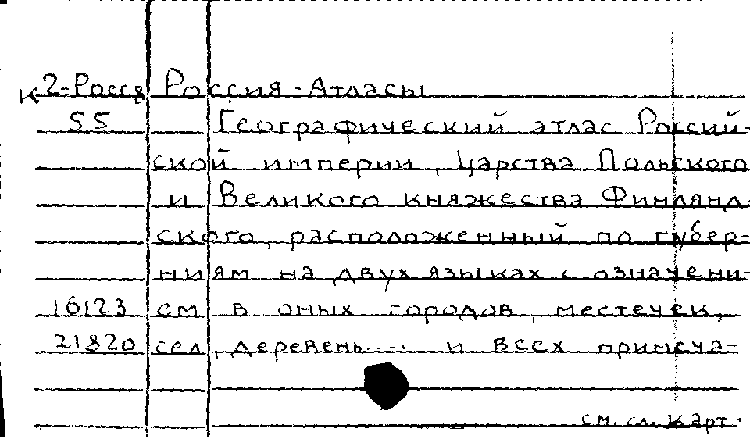 К2-Росся Россия-Атласы
55 Географический атлас Россий-
ской империи, царства Польского
и Великого княжества Финлянд-
ского, расположенный по губер-
ниям на двух языках с означени-
16123 ем в оных городов, местечек,
21820 сел, деревень... и всех примеча-
см. сл. карт.